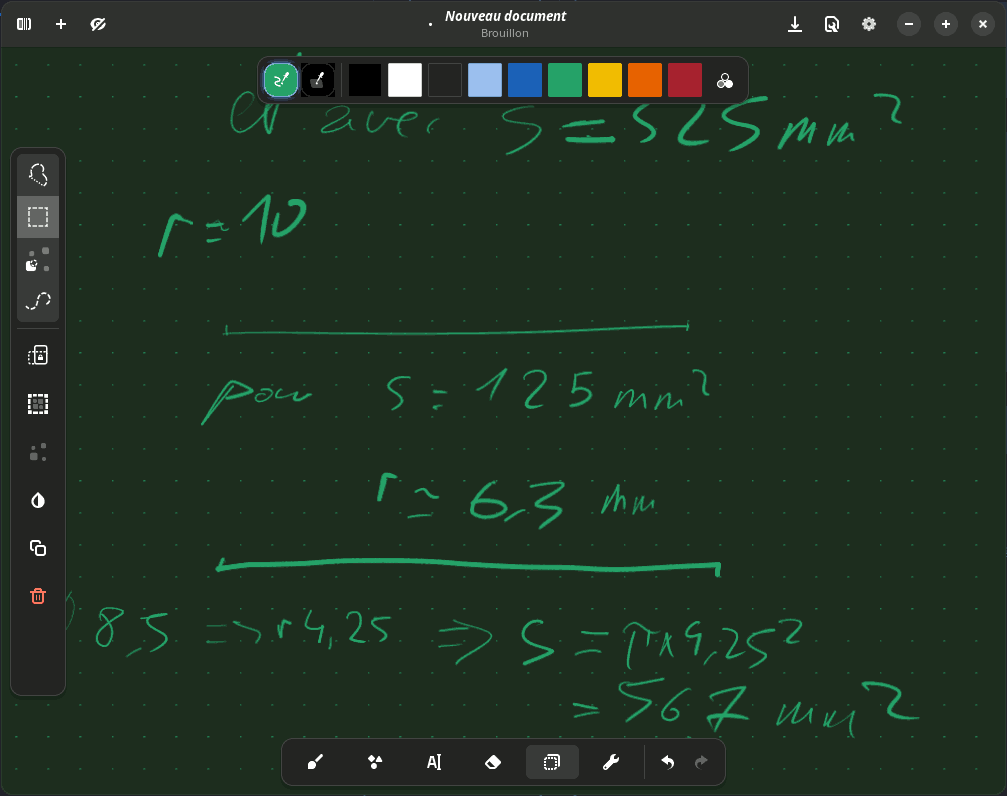 Nouveau document
Brouillon
avec S = 525 mm²
r = 10
pour S = 125 mm²
r ≃ 6,3 mm
8,5 => r 4,25 => S = π x 4,25²
= 567 mm²
AI